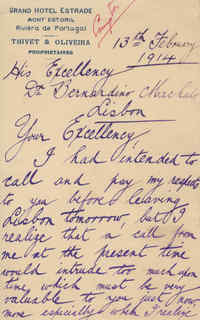 GRAND HOTEL ESTRADE
MONT ESTORIL
Riviéra de Portugal
THIVET & OLIVEIRA
PROPRIETAIRES
13th February
1914
His Excellency
Dr Bernardino Machado
Lisbon
Your Excellency
I had intended to
call and pay my respects
to you before leaving
Lisbon tomorrow but I
realize that a call from
me at the present time
would intrude too much upon
time which must be very
valuable to you just now
more especially when I realize